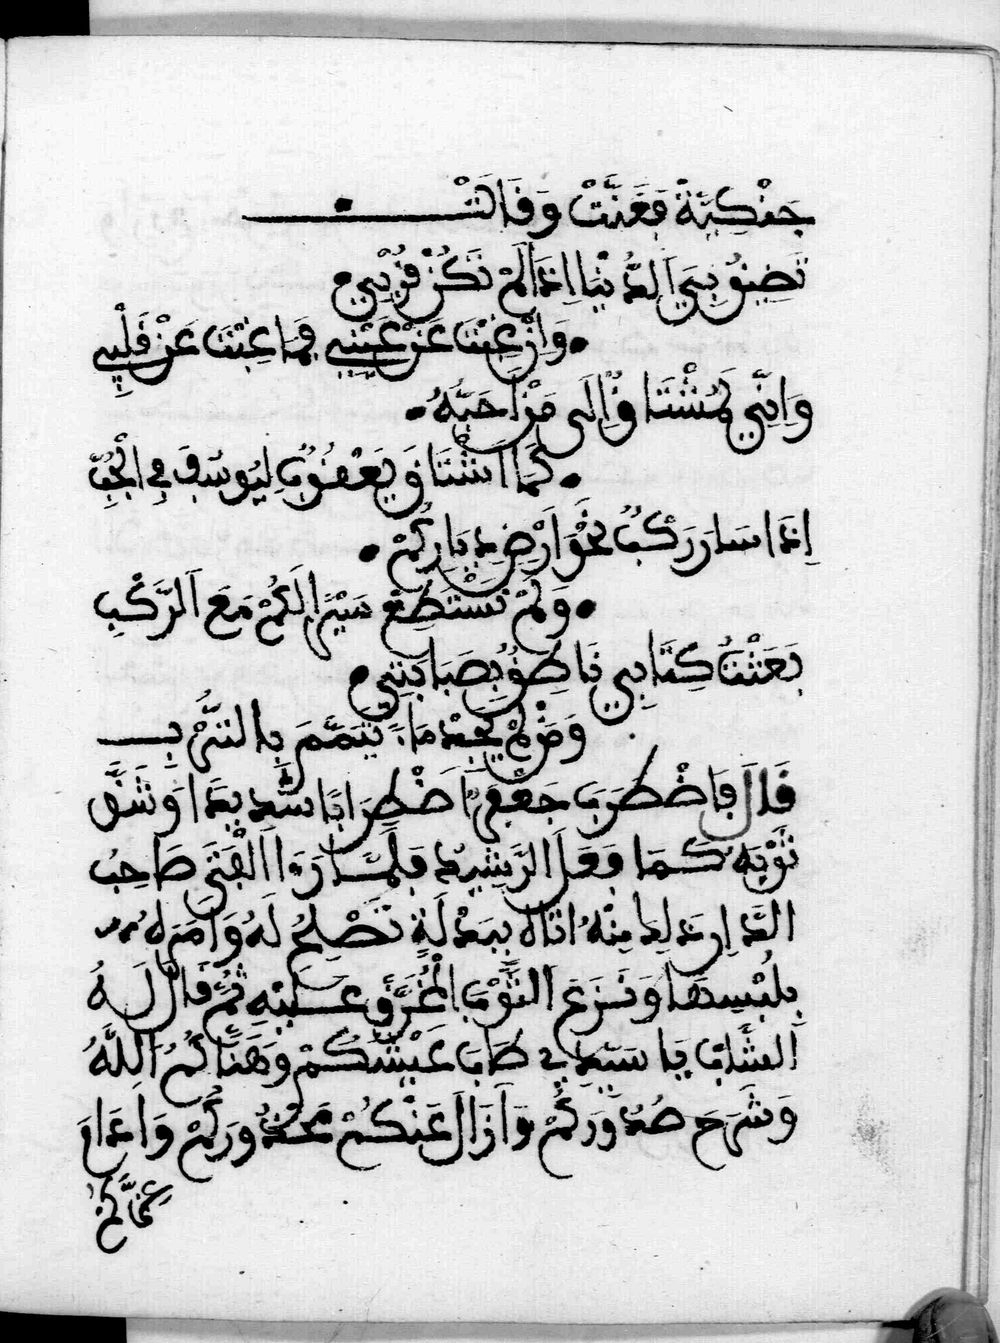 جَنْكِيَّةٌ فَغَنَّتْ وَقَالَتْ
تَضِيقُ بِيَ الدُّنْيَا اِذَا لَمْ تَكُنْ قُرْبِي
وَاِنْ غِبْتَ عَنْ عَيْنِي فَمَا غِبْتَ عَنْ قَلْبِي
وَاِنِّي لَمُشْتَاقٌ اِلَى مَنْ اُحِبُّهُ
كَمَا اشْتَاقَ يَعْقُوبُ لِيُوسُفَ فِي الْجُبِّ
اِذَا سَارَ رَكْبٌ نَحْوَ اَرْضِ دِيَارِكُمْ
وَلَمْ نَسْتَطِعْ سَيْرًا اِلَيْكُمْ مَعَ الرَّكْبِ
بَعَثْتُ كِتَابِي نَاطِقٌ بِصَبَابَتِي
وَمَنْ لَمْ يَجِدْ مَاءً تَيَمَّمَ بِالتُّرْبِ
قَالَ فَاضْطَرَبَ جَعْفَر اضْطِرَابًا شَدِيدًا وَشَقَّ
ثَوْبَهُ كَمَا فَعَلَ الرَّشِيد فَلَمَّا رَءَا الْفَتَى صَاحِبُ
الدَّارِ ذَلِكَ مِنْهُ اتَاهُ بِبَدْلَةٍ تَصْلُحُ لَهُ وَاَمَرَهُ
بِلُبْسِهَا وَنَزَعَ الثَّوْبَ الْمُخَرَّقَ عَلَيْهِ ثُمَّ قَالَ لَهُ
الشَّابُّ يَا سَيِّدِي طَابَ عَيْشُكُمْ وَهَنَّاكُمُ اللَّهُ
وَشَرَحَ صُدُورَكُمْ وَاَزَالَ عَنْكُمْ مَحْذُورَكُمْ وَاَذَاعَ